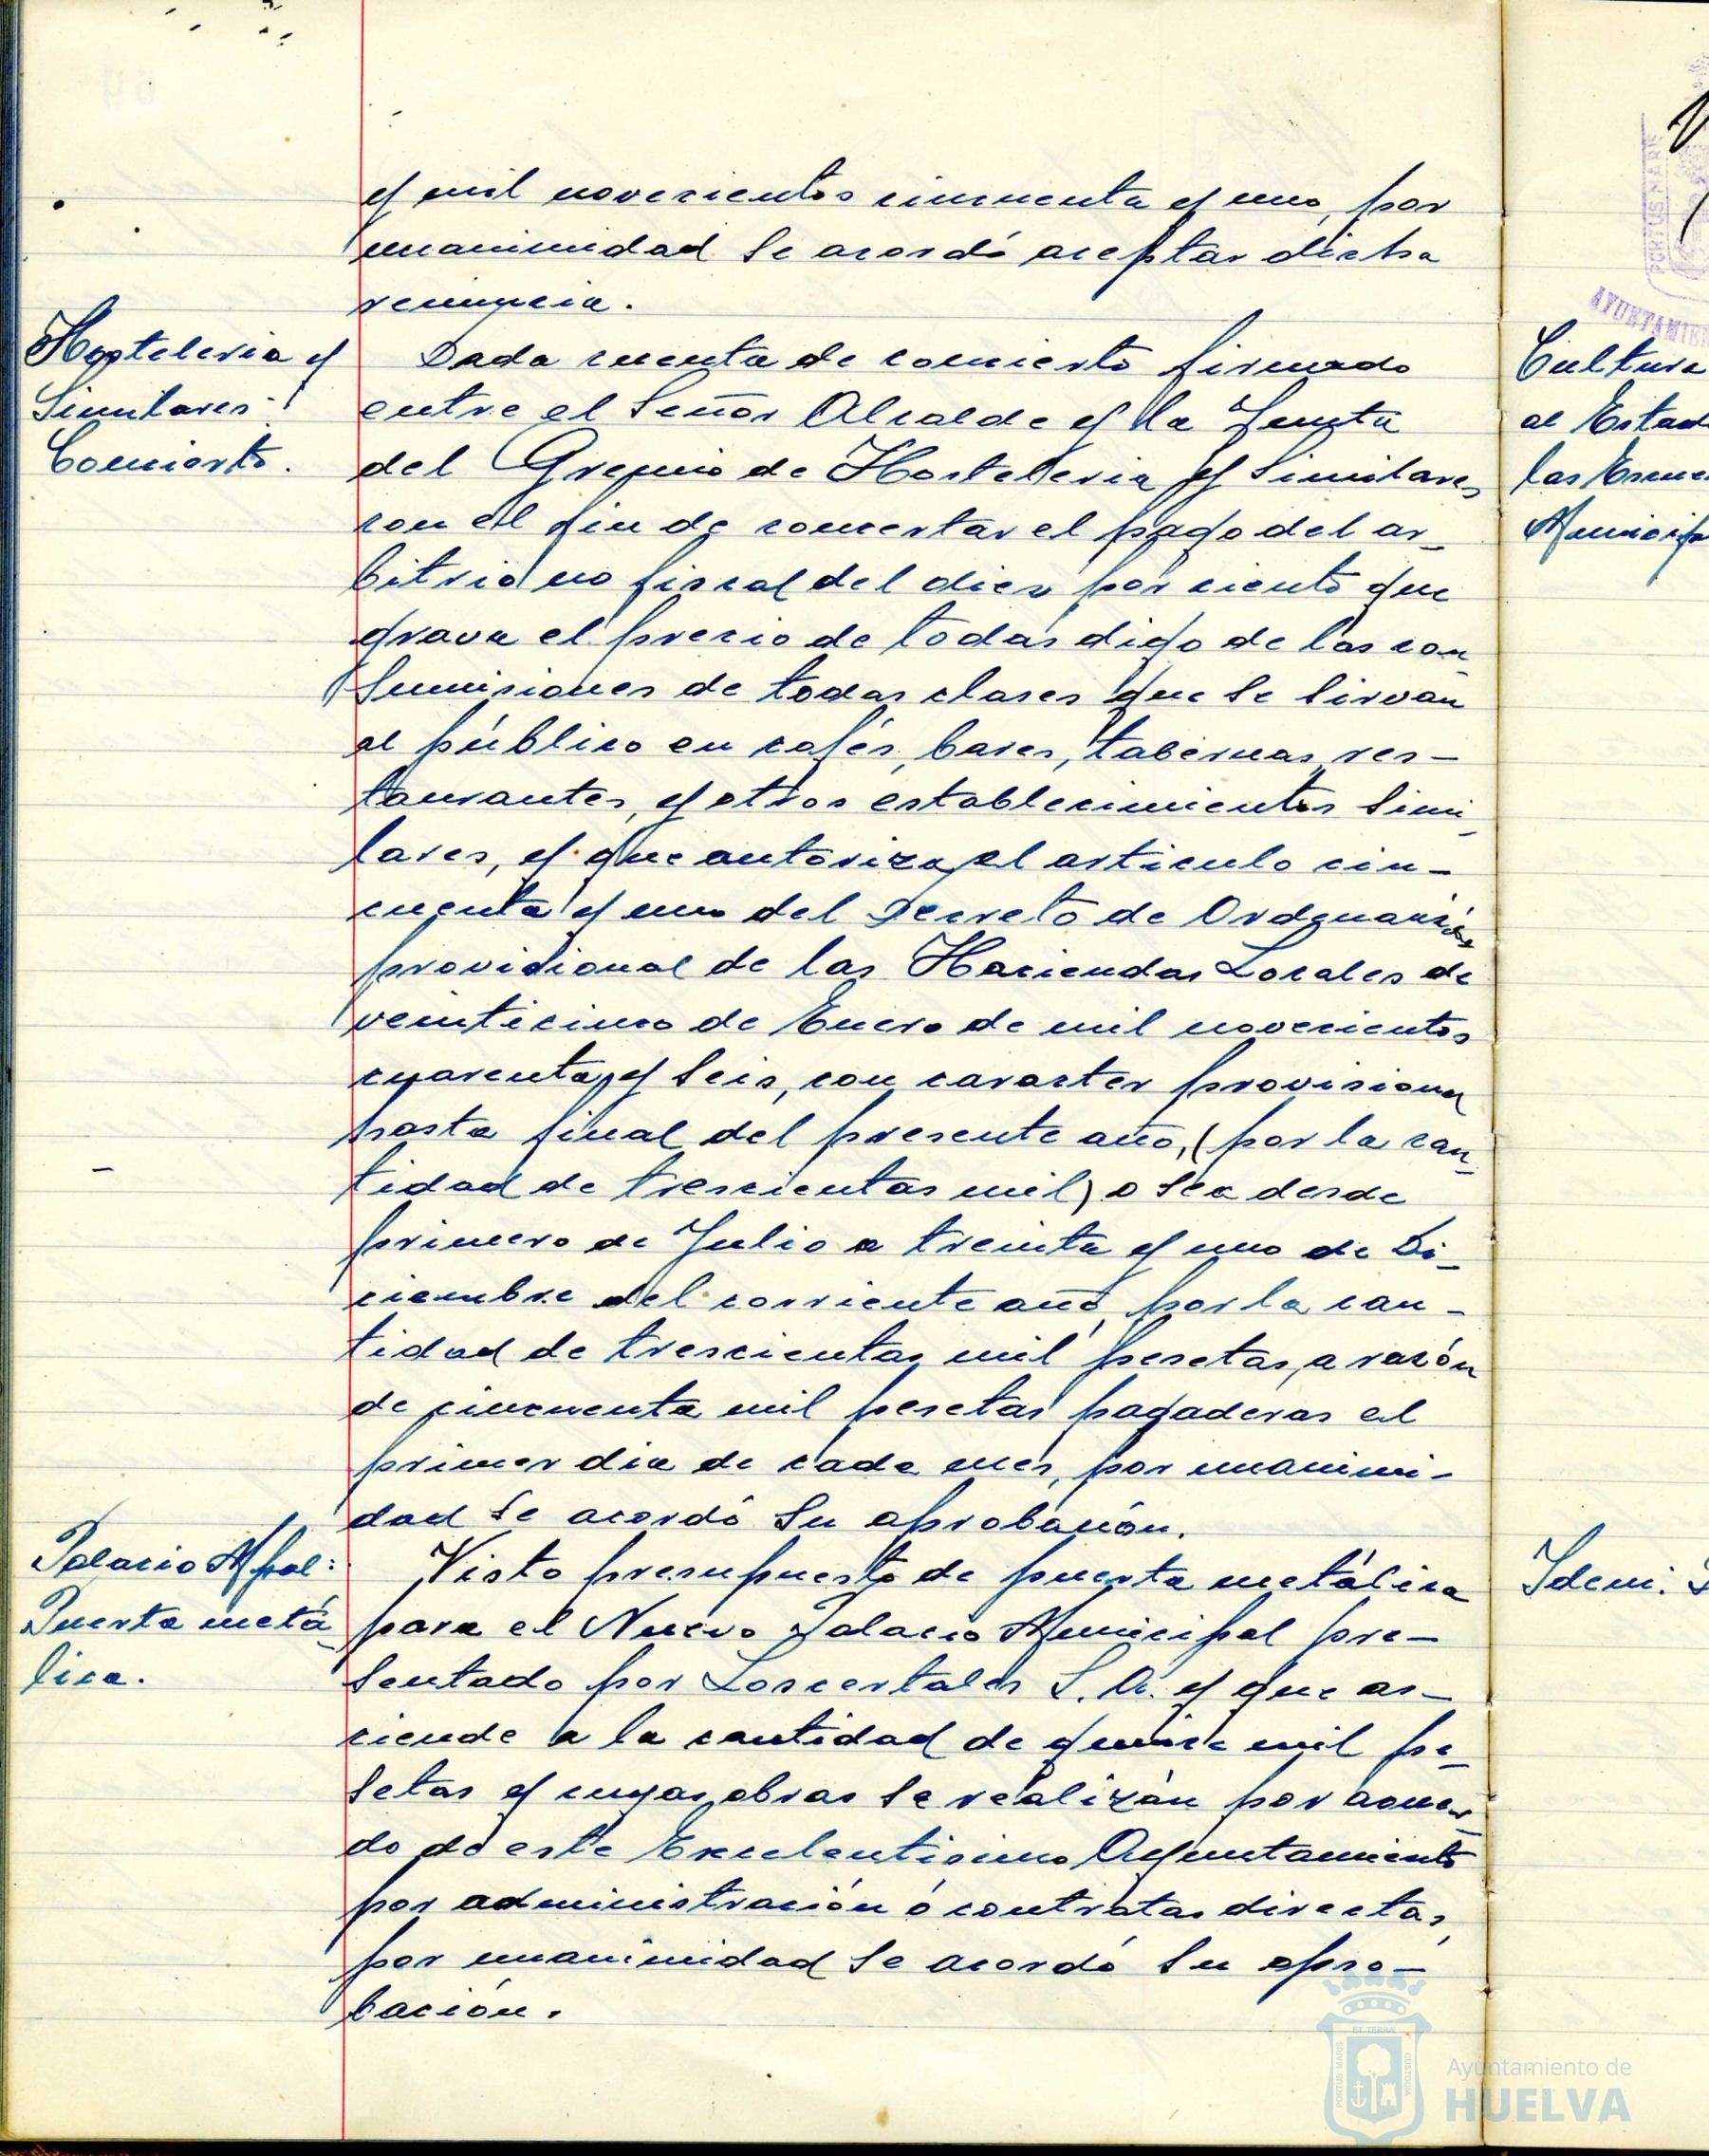 y mil novecientos cincuenta y uno, por
unanimidad se acordó aceptar dicha
renuncia.
Hosteleria y
Similares:
Concierto.
Dada cuenta de concierto firmado
entre el Señor Alcalde y la Junta
del Gremio de Hosteleria y Similares
con el fin de concertar el pago del ar-
bitrio no fiscal del diez por ciento que
grava el precio de todas digo de las con-
sumisiones de todas clases que se sirvan
al público en cafés, bares, tabernas, res-
taurantes, y otros establecimientos simi-
lares, y que autoriza el articulo cin-
cuenta y uno del Decreto de Ordenación
provisional de las Haciendas Locales de
veinticinco de Enero de mil novecientos
cuarenta y seis, con caracter provisional
hasta final del presente año, (por la can-
tidad de trescientas mil) o sea desde
primero de Julio a treinta y uno de Di-
ciembre del corriente año, por la can-
tidad de trescientas mil pesetas, a razón
de cincuenta mil pesetas pagaderas el
primer dia de cada mes, por unanimi-
dad se acordó su aprobación.
Palacio Mpal:
Puerta metá-
lica.
Visto presupuesto de puerta metálica
para el Nuevo Palacio Municipal pre-
sentado por Loscertales S.A. y que as-
ciende a la cantidad de quince mil pe-
setas y cuyas obras se realizán por acuer-
do de este Excelentisimo Ayuntamiento
por administración ó contratas directas,
por unanimidad se acordó su apro-
bación.
Cultura
al Estad
las Escue
Municipa
Idem:
PORTUS MARIS
AYUNTAMIEN
Ayuntamiento de
HUELVA